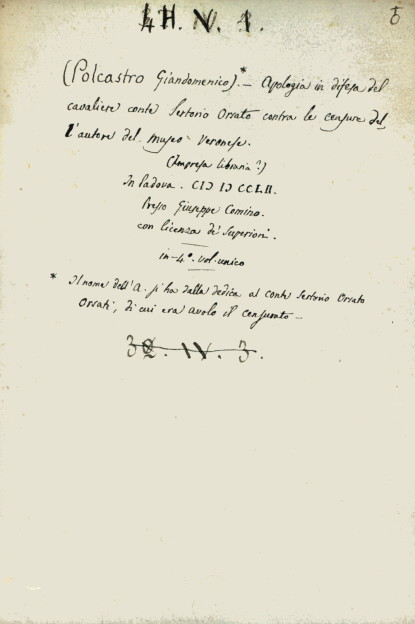 4H. V. 1.
(Polcastro Giandomenico).* — Apologia in difesa del
cavaliere conte Sertorio Orsato contra le censure del
l'autore del museo Veronese.
(Impresa libraria?)
In Padova. CIƆ IƆ CCLII.
Presso Giuseppe Comino.
con licenza de' Superiori.
in-4°. vol. unico
* Il nome dell'A. si ha dalla dedica al conte Sertorio Orsato
Orsati, di cui era avolo il censurato —
32. IV. 3.